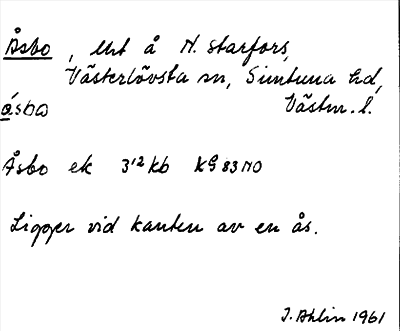 Åsbo, lht å N. Starfors,
Västerlövsta sn, Simtuna hd,
åsbo Västm. l.
Åsbo ek 3¹² kb KG 83 NO
Ligger vid kanten av en ås.
J. Ahlin 1961